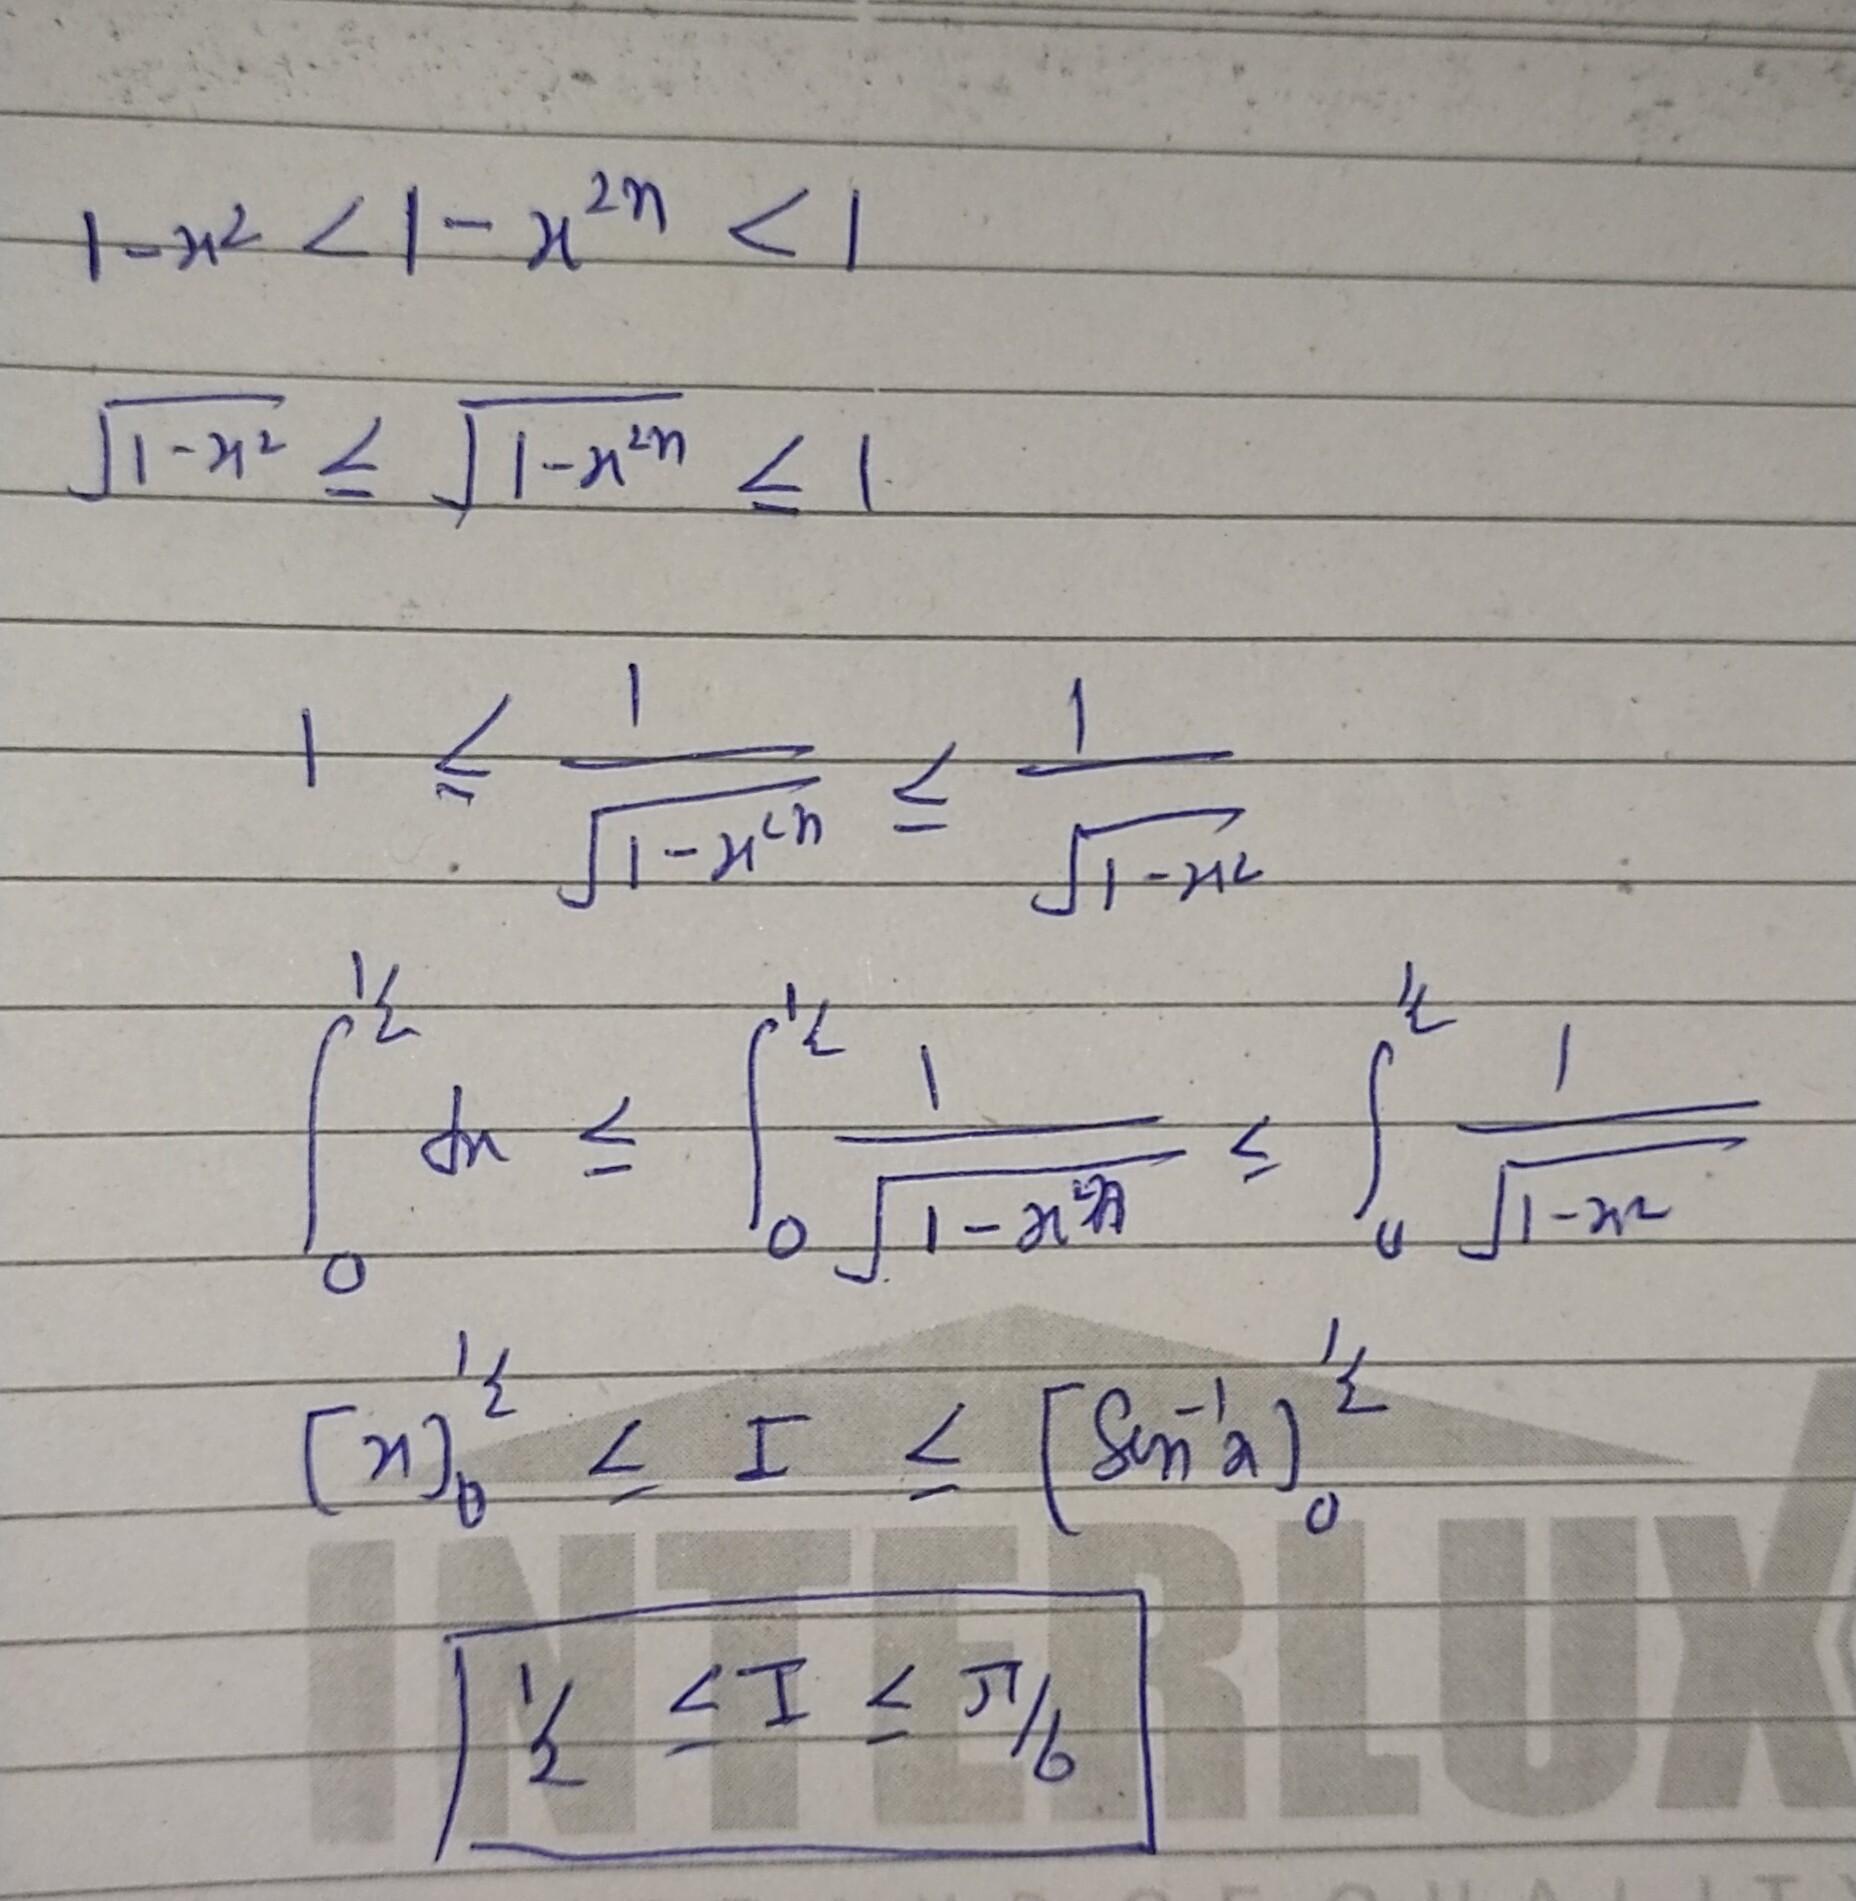 1-x² < 1-x²ⁿ < 1
√(1-x²) ≤ √(1-x²ⁿ) ≤ 1
1 ≤ 1/√(1-x²ⁿ) ≤ 1/√(1-x²)
∫₀^½ dx ≤ ∫₀^½ 1/√(1-x²ⁿ) ≤ ∫₀^½ 1/√(1-x²)
[x]₀^½ ≤ I ≤ [Sin⁻¹x]₀^½
½ ≤ I ≤ π/6
INTERLUX